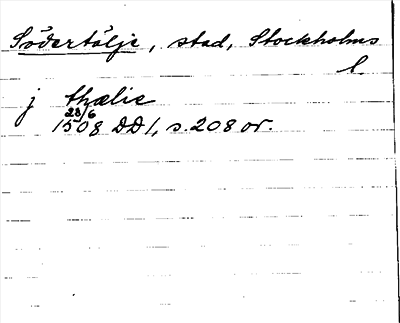 Södertälje, stad, Stockholms
l.
j thælie
23/6
1508 DD1, s. 208 or.